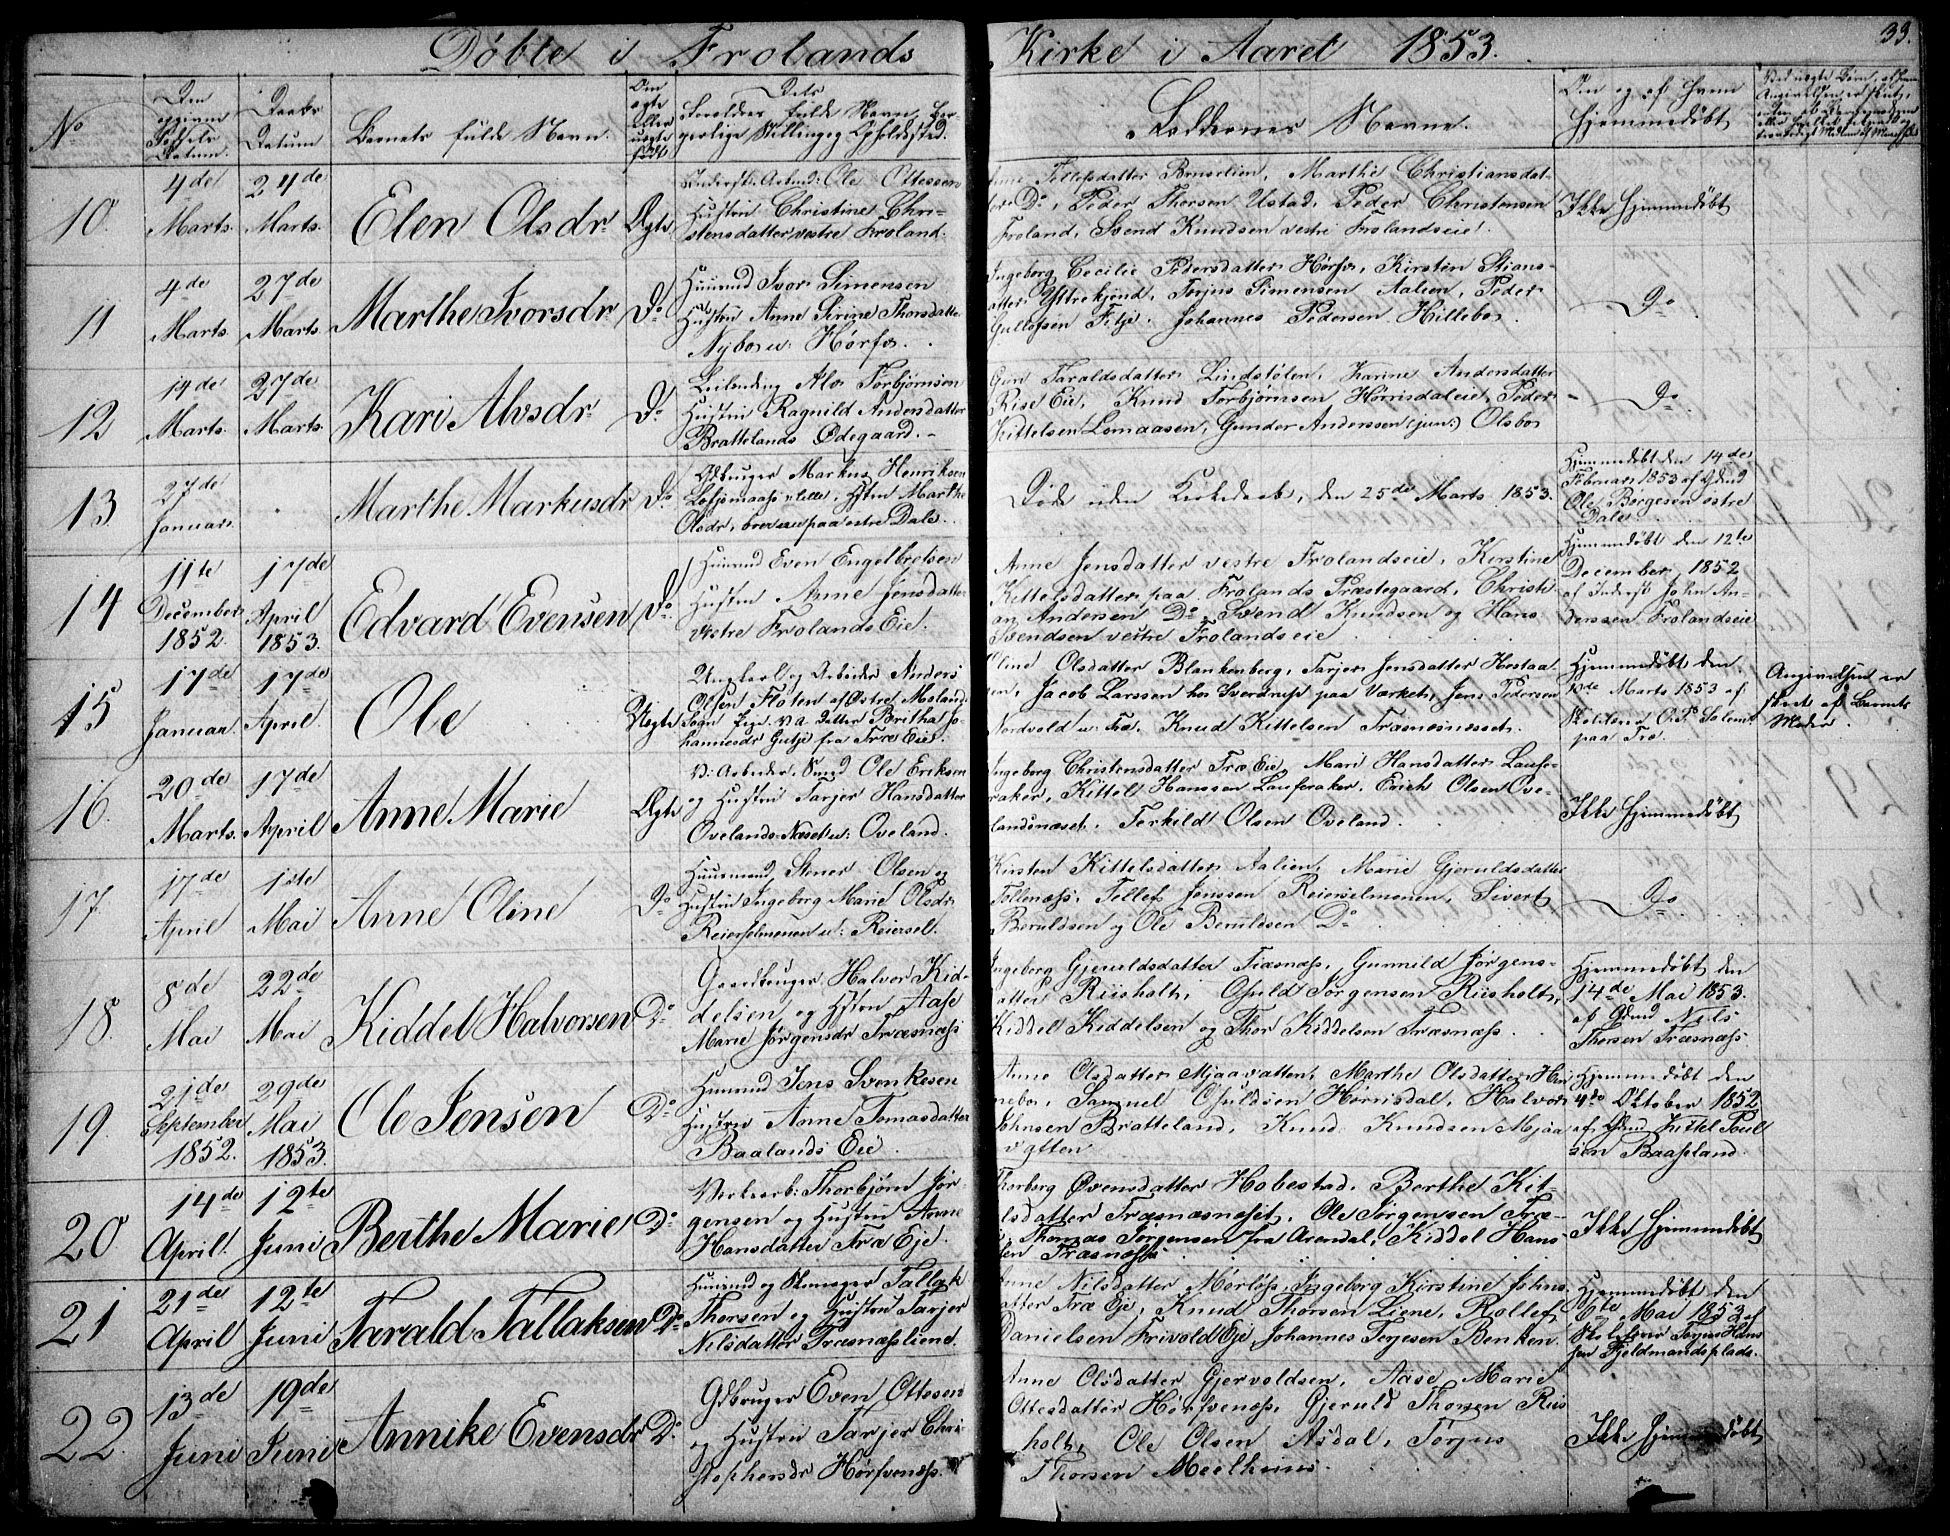 33.
Døbte i Frolands Kirke i Aaret 1853.
No
Den opgivne Fødsels Datum.
Daabs Datum
Barnets fulde Navn.
Om ægte eller uægte født
Dets Forældres fulde Navn, Borgerlige Stilling og Opholdssted.
Faddernes Navne.
Om og af hvem hjemmedøbt
10.
4de Marts.
24de Marts.
Elen Olsdr
Ægte
Inderst. Arbmd: Ole Ottessen
Hustru Christine Chri-
stensdatter vestre Froland.
Tellefsdatter Benselien, Marthe Christiansdat-
ter Do, Peder Thorsen Ustad, Peder Christensen
Froland, Svend Knudsen vestre Frolandseie.
Ikke hjemmedøbt
11
4de Marts.
27de Marts.
Marthe Ivorsdr
Do
Huusmd Ivor Simensen
Hustru Anne Sirine Thorsdatter
Nyboe u: Hørfos.
Ingeborg Cecilie Pedersdatter Hørfos, Kirsten Stians-
datter Yttrekjend, Torjus Simensen Aalien, Peder
Gullofsen Fitje, Johannes Pedersen Hillebo.
Do
12
14de Marts.
27de Marts.
Kari Alvsdr
Do
Leilending Alv Torbjørnsen
Hustru Ragnild Andersdatter
Brattelands Ødegaard.
Gun Taraldsdatter Lindstølen, Karine Andersdatter
Rise Eie, Knud Torbjørnsen Hørrisdaleie, Peder
Kittelsen Lomaasen, Gunder Anderssen (jun:) Olsbo
Do
13
27de Januar.
Marthe Markusdr
Do
Gdbruger Markus Henriksen
Hstru Marthe
Olsdr, boende paa østre Dale.
Døde uden Kirkedaab, den 25de Marts 1853.
Hjemmedøbt den 14de
Februar 1853 af Gdmd
Ole Børgesen østre
Dale
14
11te December 1852.
17de April 1853.
Edvard Evensen
Do
Huusmd Even Engelbretsen
Hustru Anne Jensdatter
vestre Frolands Eie.
Anne Jensdatter vestre Frolandseie, Kirstine
Kittelsdatter paa Frolands Præstegaard, Christi-
an Andersen Do, Svend Knudsen og Hans
Svendsen vestre Frolandseie
Hjemmedøbt den 12te
December 1852
af Inderst John An-
derssen Frolandseie
15
17de Januar
17de April.
Ole
Uægte
Ungkarl og Arbeider Anders
Olsen Floten af Østre Moland
Sogn Pige. Datter Berthe Jo-
hannesdr Gutje fra Træ Eie.
Oline Olsdatter Blankenberg, Tarjer Jensdatter Hestaa-
sen, Jacob Larssen hos Sverdrup paa Værket, Jens Pedersen
Nordvold u: Træ, Knud Kittelsen Træsnæsnesset.
Hjemmedøbt den
Marts 1853 af
Skoleholder O. T. Salem
paa Træ.
Angivelsen er
skeet af Barnets
Moder.
16.
20de Marts.
17de April
Anne Marie
Ægte
V: Arbeider, Smed Ole Eriksen
og Hustru Tarjer Hansdatter
Ovelands Næset u: Oveland.
Ingeborg Christensdatter Træ Eie, Mari Hansdatter Laufe-
raker, Kittel Hanssen Lauferaker, Erich Olsen Ove-
landsnæset, Terkild Olsen Oveland.
Ikke hjemmedøbt
17.
17de April
1ste Mai
Anne Oline
Do
Huusmand Stener Olsen og
Hustru Ingeborg Marie Olsdr
Reierselmonen u: Reiersel.
Kirsten Kittelsdatter Aalien, Marie Gjeruldsdatter
Tollenæss, Tellef Jenssen Reierselmonen, Sivert
Beruldsen og Ole Beruldsen Do
Do
18.
8de Mai
22de Mai
Kiddel Halvorsen
Do
Gaardbruger Halvor Kid-
delsen og Hstru Aase
Marie Jørgensdr Træsnæss
Ingeborg Gjeruldsdatter Træsnæss, Gunnild Jørgens-
datter Riisholt, Osuld Jørgensen Riisholt,
Kiddel Kiddelsen og Thor Kiddelsen Træsnæss.
Hjemmedøbt den
14de Mai 1853.
af Gdmd Niels
Thorsen Træsnæss.
19.
21de September 1852.
29de Mai 1853.
Ole Jensen
Do
Huusmd Jens Svenkesen
Hustru Anne Tomasdatter
Baalands Eie.
Anne Olsdatter Mjaavatten, Marthe Olsdatter Hin-
nebo, Samuel Osuldsen Hørrisdal, Halvor
Johnsen Bratteland, Knud Knudsen Mjaa-
vatten
Hjemmedøbt den
4de Oktober 1852
af Gdmd Kittel Poul-
sen Baaseland.
20
14de April.
12te Juni
Berthe Marie
Do
Verksarb: Thorbjørn Jør-
gensen og Hustru Anne
Hansdatter Træ Eje.
Thorberg Øvensdatter Hobestad, Berthe Kit-
elsdatter Træsnæsnæset, Ole Jørgensen Træ-
Thomas Jørgensen fra Arendal, Kiddel Hans-
sen Træsnæss
Ikke hjemmedøbt
21
21de April
12te Juni
Tarald Tallaksen
Do
Huusmd og Skomager Tallak
Thorsen og Hustru Tarjer
Nilsdatter Træsnæssliene.
Anne Nilsdatter Mørløs, Ingeborg Kirstine Johns-
datter Træ Eje, Knud Thorsen Liene, Rollef
Danielsen Frivold Eje, Johannes Terjesen Benken
Hjemmedøbt den
6te Mai 1853 af
Skolelærer Torjus Hans-
sen Fjeldmandsplads.
22.
13de Juni
19de Juni
Annike Evensdr
Do
Gdbruger Even Ottesen
og Hustru Tarjer Chri-
stophersdr Hørfvenæss.
Anne Olsdatter Gjervoldsen, Aase Marie
Ottesdatter Hørfvenæss, Gjeruld Thorsen Riis
holt, Ole Olsen Asdal, Torjus
Thorsen Mælhuus.
Ikke hjemmedøbt